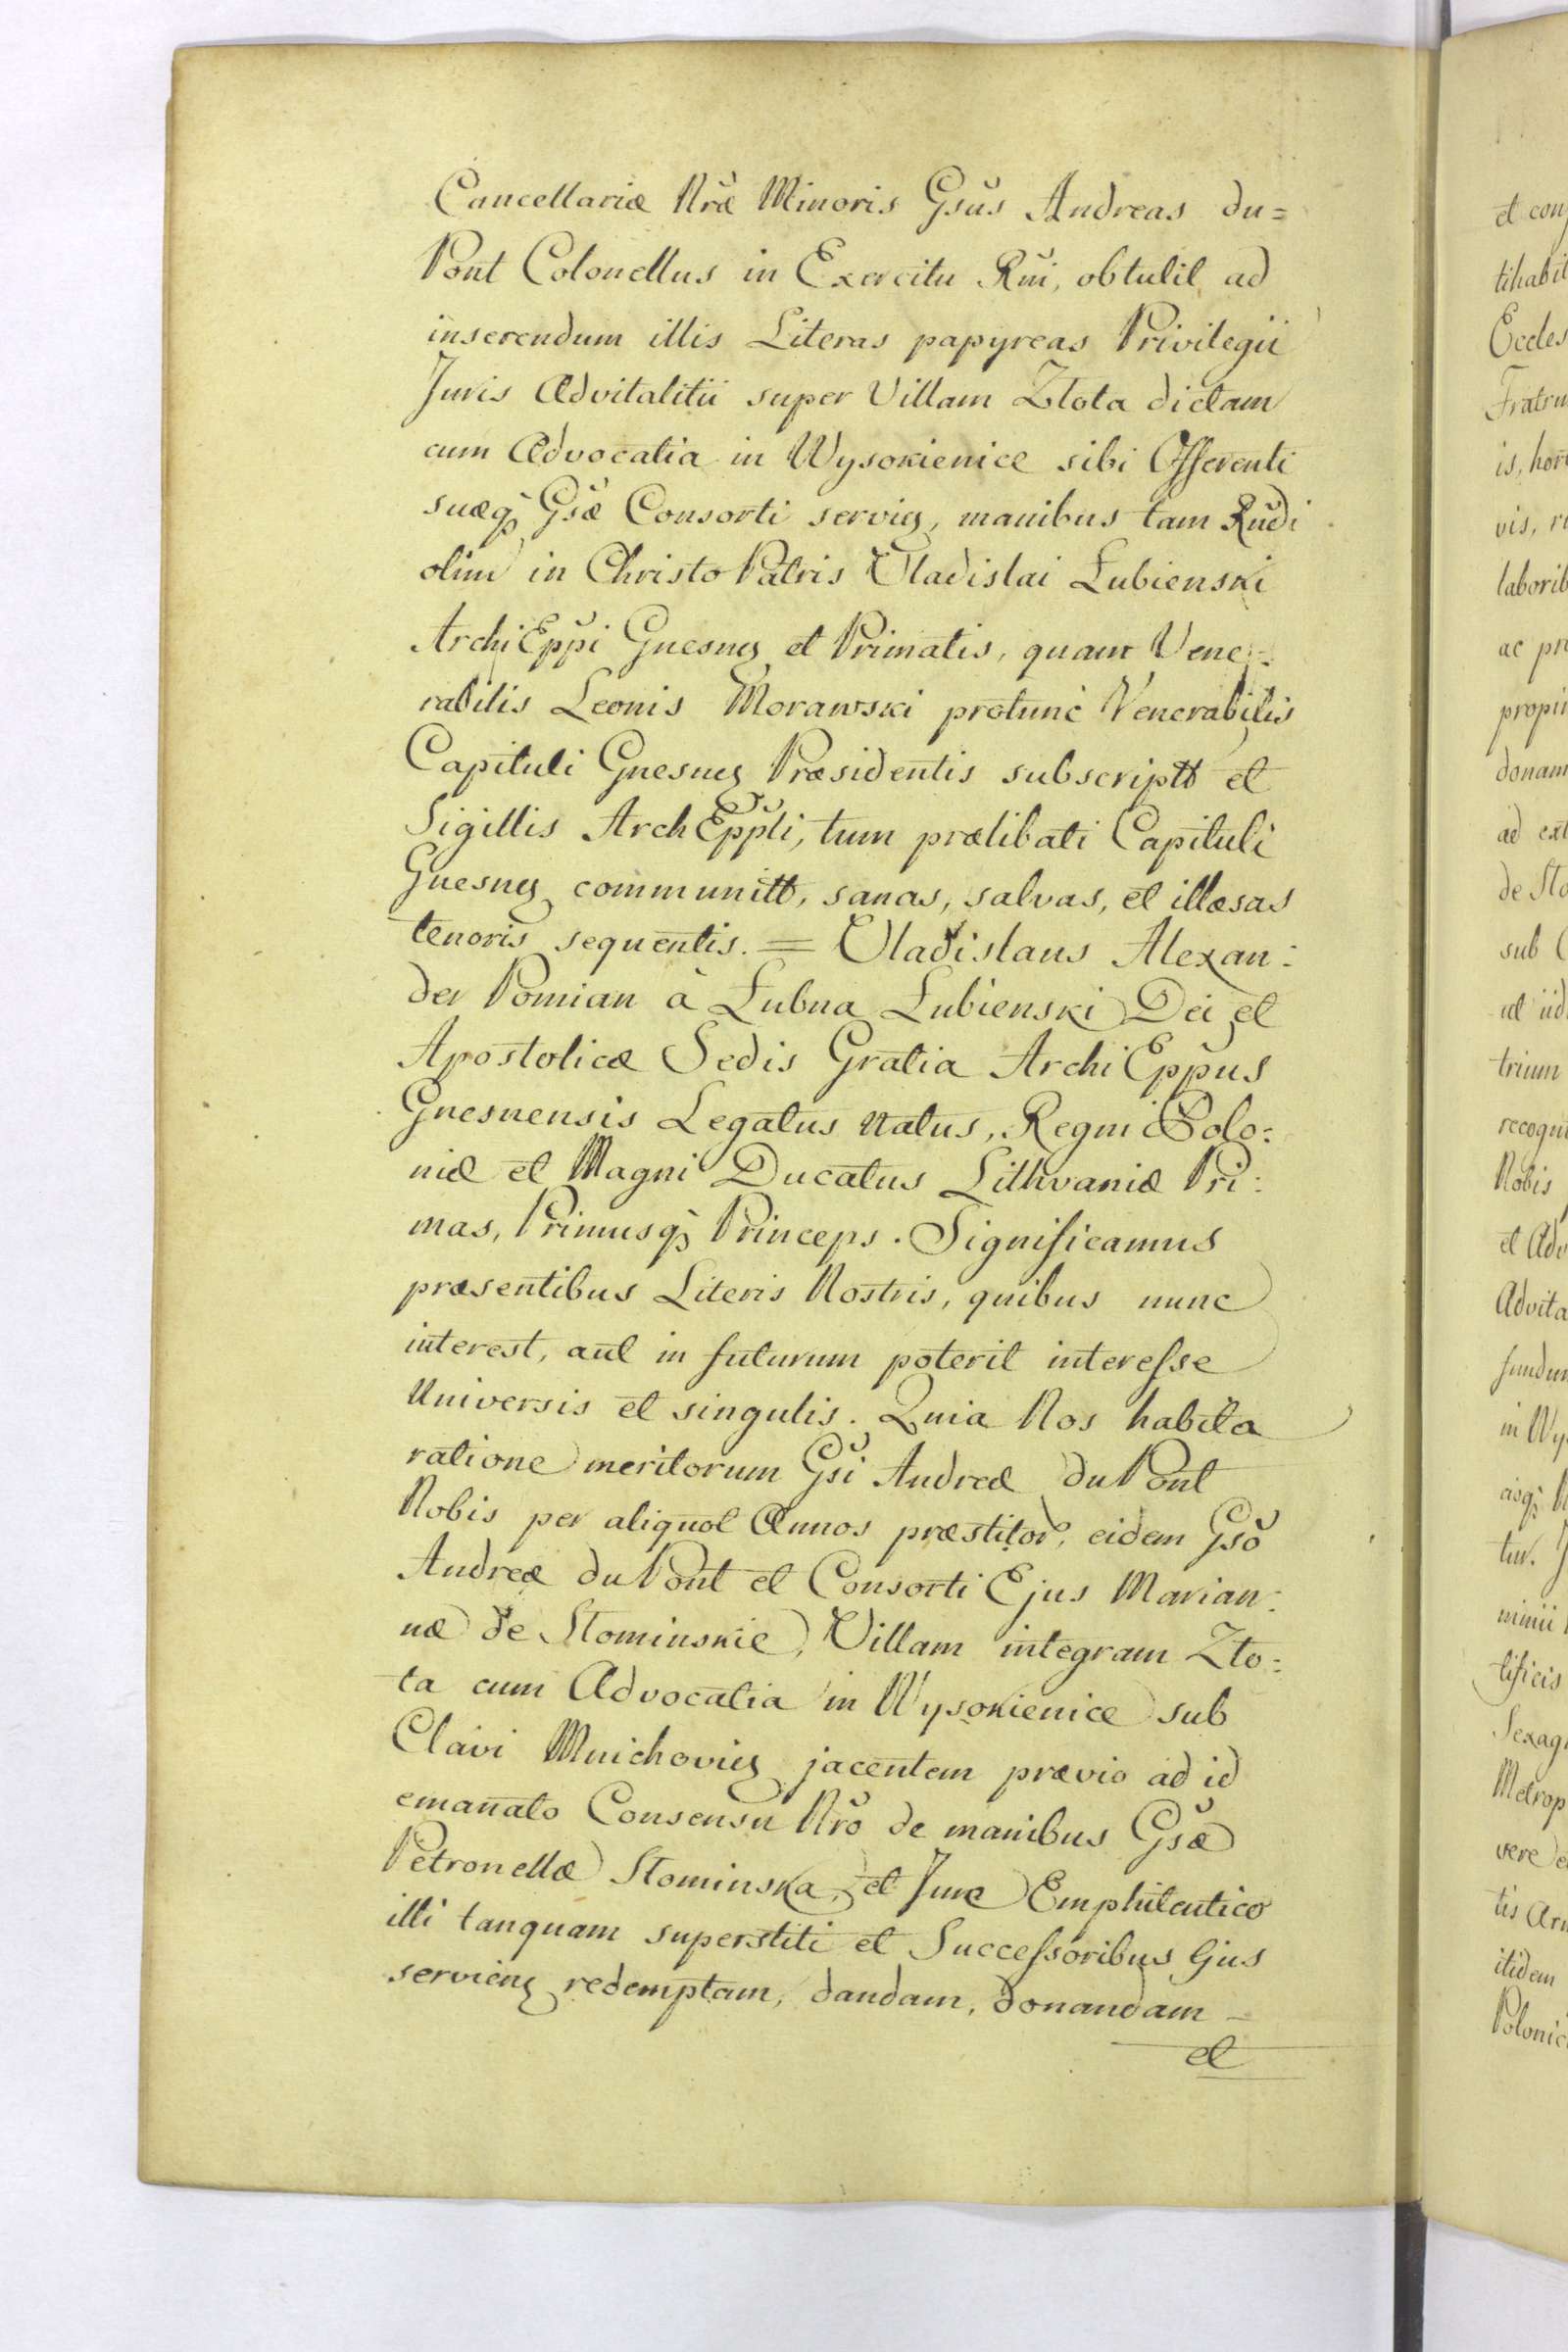 Cancellariæ Nræ Minoris Gsus Andreas du=
Pont Colonellus in Exercitu Rni, obtulit ad
inserendum illis Literas papyreas Privilegii
Juris Advitalitii super Villam Złota dictam
cum Advocatia in Wysokienice sibi Offerenti
suæq₃ Gsæ Consorti servieñ, manibus tam Rndi
olim in Christo Patris Vladislai Łubienski
ArchiEppi Gnesneñ et Primatis, quam Vene=
rabilis Leonis Morawski protunc Venerabilis
Capituli Gnesneñ Præsidentis subscriptt et
Sigillis ArchEppli, tum prælibati Capituli
Gnesneñ communitt, sanas, salvas, et illæsas
tenoris sequentis. = Vladislaus Alexan:
der Pomian à Łubna Łubienski Dei et
Apostolicæ Sedis Gratia ArchiEppus
Gnesnensis Legatus natus, Regni Polo:
niæ et Magni Ducatus Lithvaniæ Pri:
mas, Primusq₃ Princeps. Significamus
præsentibus Literis Nostris, quibus nunc
interest, aut in futurum poterit interesse
Universis et singulis. Quia Nos habita
ratione meritorum Gsi Andreæ du Pont
Nobis per aliquot Annos præstitor, eidem Gso
Andreæ du Pont et Consorti Ejus Marian:
næ de Słominskie, Villam integram Zło:
ta cum Advocatia in Wysokienice sub
Clavi Mnichovieñ jacentem prævio ad id
emanato Consensu Nro de manibus Gsæ
Petronellæ Słominska, et Jure Emphiteutico
illi tanquam superstiti et Successoribus Ejus
servieng redemptam, dandam, donandam –
et